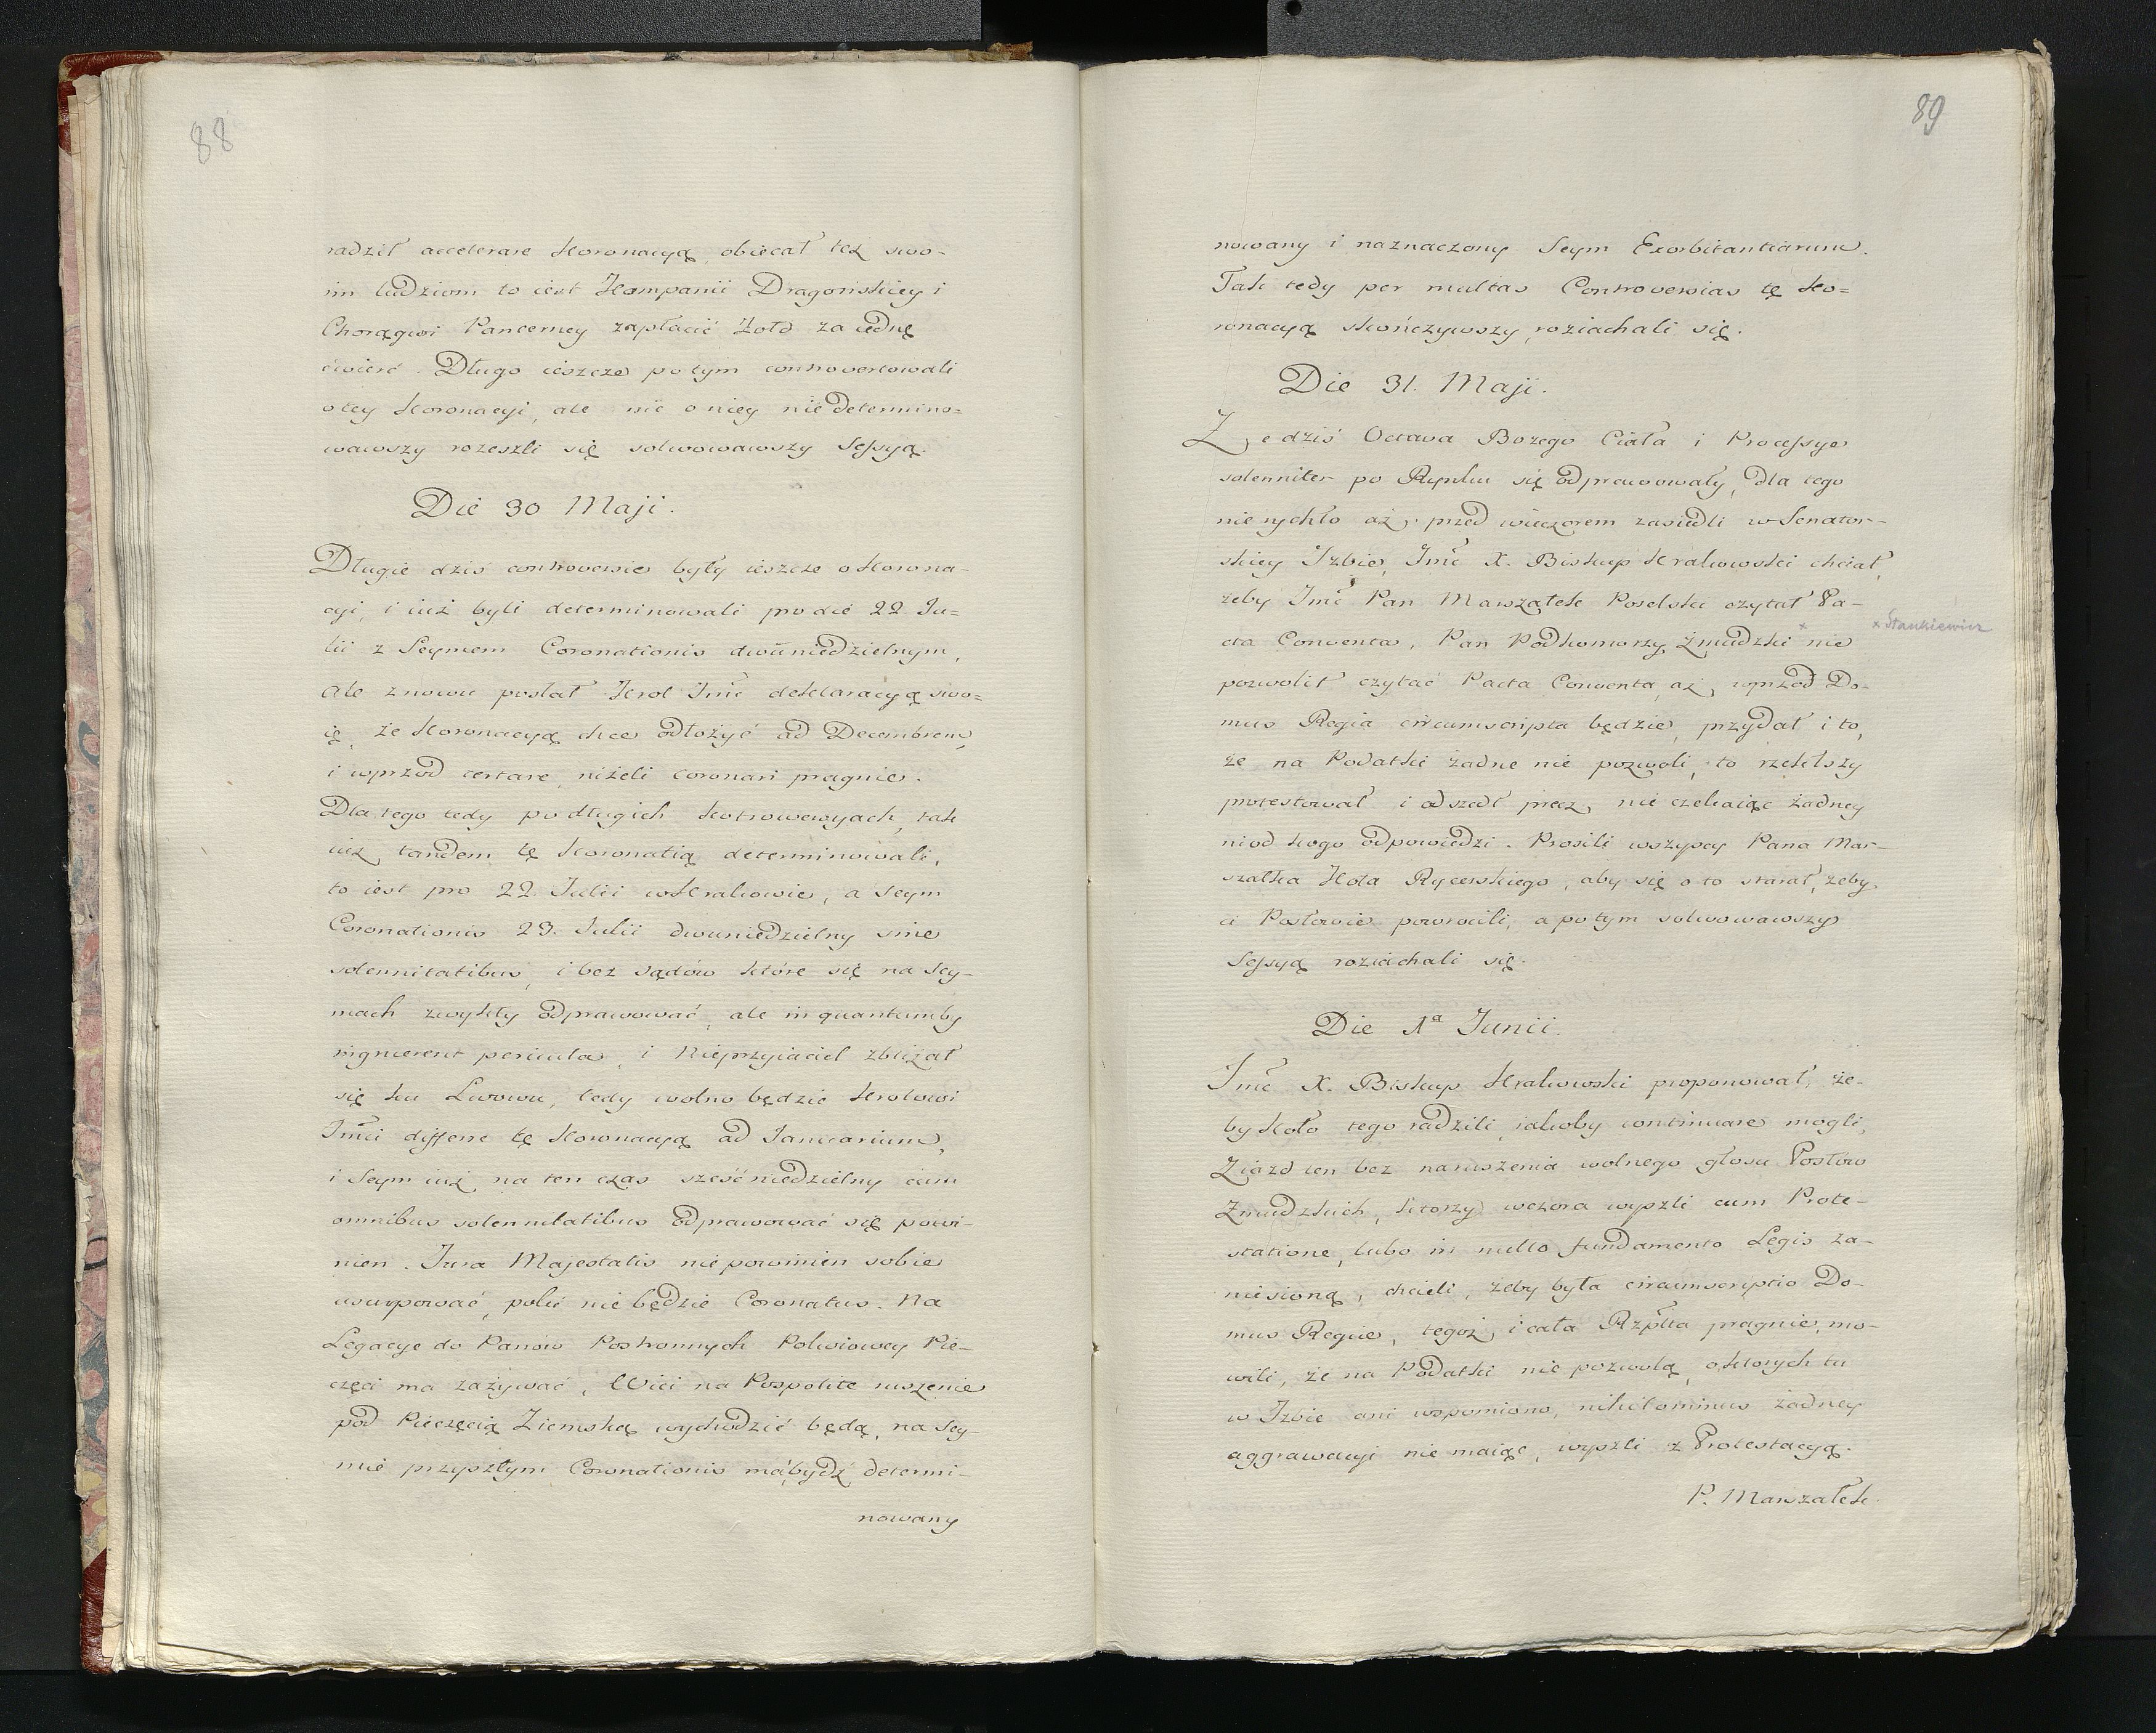 88
radził accelerare Koronacyą, obiecał też swo-
im ludziom to iest Kompanii Dragońskiey i
Chorągwi Pancerney zapłacić Żołd za iednę
ćwierć. Długo ieszcze potym controvertowali
o tey Koronacyi, ale nic o niey nie determino=
wawszy rozeszli się solwowawszy Sessyą.
Die 30 Maji.
Długie dziś controversie były ieszcze o Korona-
cyi, i iuż byli determinowali pro die 22 Ju=
lii z Seymem Coronationis dwuniedzielnym,
ale znowu posłał Krol Jmć deklaracyą swo=
ię, że Koronacyą chce odłożyć ad Decembrem,
i wprzod certare, niżeli coronari pragnie.
Dla tego tedy po długich kotrowersyach, tak
iuż tandem tę Koronatią determinowali,
to iest pro 22 Julii w Krakowie, a Seym
Coronationis 23. Julii dwuniedzielny sine
solennitatibus, i bez sądów które się na Sey-
mach zwykły odprawować, ale in quantumby
ingruerent pericula, i Nieprzyiaciel zbliżał
się ku Lwowu, tedy wolno będzie Krolowi
Jmci differre tę Koronacyą ad Januarium,
i Seym iuż na ten czas sześćniedzielny cum
omnibus solennitatibus odprawować się powi-
nien. Jura Majestatis nie powinien sobie
usurpować, poki nie będzie Coronatus. Na
Legacye do Panow Postronnych Pokoiowey Pie-
częci ma zażywać, Wici na Pospolite ruszenie
pod Pieczęcią Ziemską wychodzić będą, na Sey-
mie przyszłym Coronationis ma bydź determi-
nowany
89
nowany i naznaczony Seym Exorbitantiarum.
Tak tedy per multas Controversias tę Ko=
ronacyą skończywszy, roziachali się.
Die 31. Maji.
Ze dziś Octava Bożego Ciała i Processye
solenniter po Rynku się odprawowały, dla tego
nierychło aż przed wieczorem zasiedli w Senator-
skiey Izbie, Jmć X. Biskup Krakowski chciał,
żeby Jmć Pan Marszałek Poselski czytał Pa-
cta Conventa, Pan Podkomorzy Żmudzki × nie
× Stankiewicz
pozwolił czytać Pacta Conventa, aż wprzod Do-
mus Regia circumscripta będzie, przydał i to,
że na Podatki żadne nie pozwoli, to rzekłszy
protestował i odszedł precz, nie czekaiąc żadney
ni od kogo odpowiedzi. Prosili wszyscy Pana Mar-
szałka Koła Rycerskiego, aby się o to starał, żeby
ci Posłowie powrocili, a potym solwowawszy
Sessyą roziachali się.
Die 1ª Junii.
Jmć X. Biskup Krakowski proponował, że-
by koło tego radzili, iakoby continuare mogli,
Ziazd ten bez naruszenia wolnego głosu Posłow
Żmudzkich, ktorzy wczora wyszli cum Prote-
statione, lubo in nullo fundamento Legis za-
niesioną, chcieli, żeby była circumscriptio Do-
mus Regiæ, tegoż i cała Rzplta pragnie, mo-
wili, że na Podatki nie pozwolą, o ktorych tu
w Izbie ani wspomiono, nihilominus żadney
aggrawacyi nie maiąc, wyszli z Protestacyą.
P. Marszałek